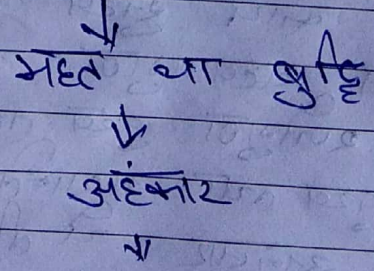 ↓
महत या बुद्धि
↓
अहंकार
↓